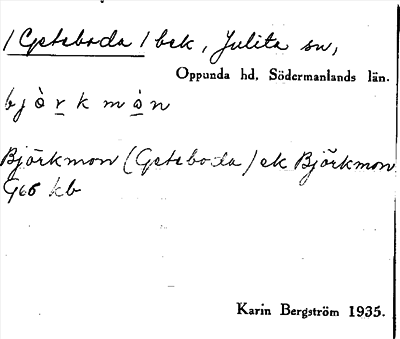 /Geteboda/ bek, Julita sn,
Oppunda hd, Södermanlands län.
bjòrkmån
Björkmon (Geteboda) ek Björkmon
G66 kb
Karin Bergström 1935.